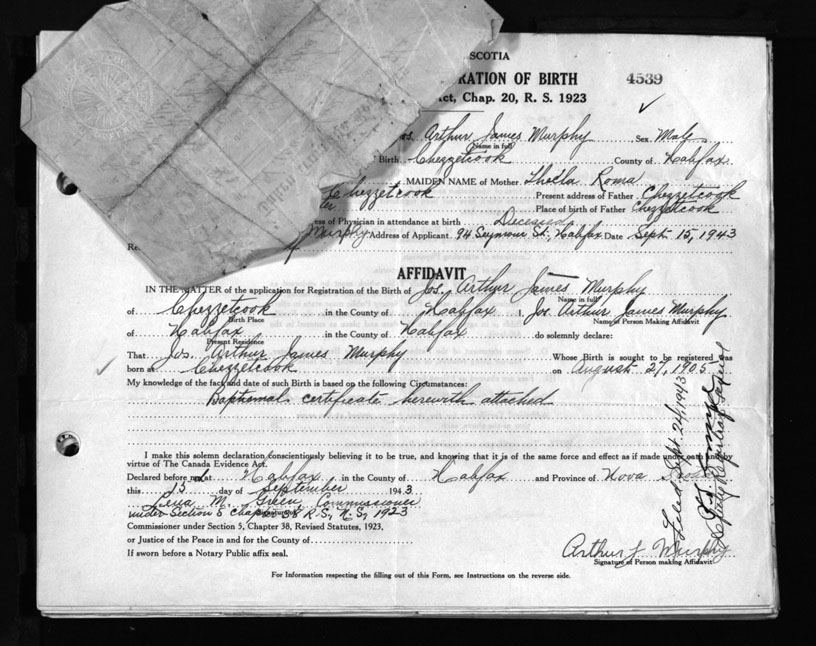 SCOTIA
RATION OF BIRTH 4539
Act, Chap. 20, R. S. 1923
Jos. Arthur James Murphy Sex Male
Name in full
Birth Chezzetcook County of Halifax
MAIDEN NAME of Mother Sheila Roma
Chezzetcook Present address of Father Chezzetcook
Place of birth of Father Chezzetcook
ss of Physician in attendance at birth Deceased
Murphy Address of Applicant 94 Seymour St., Halifax Date Sept 15, 1943
Re
AFFIDAVIT
IN THE MATTER of the application for Registration of the Birth of Jos. Arthur James Murphy
Name in full
of Chezzetcook in the County of Halifax I, Jos Arthur James Murphy
Birth Place Name of Person Making Affidavit
of Halifax in the County of Halifax do solemnly declare:
Present Residence
That Jos. Arthur James Murphy Whose Birth is sought to be registered was
born at Chezzetcook on August 27, 1905
My knowledge of the fact and date of such Birth is based on the following Circumstances:
Baptismal certificate herewith attached
I make this solemn declaration conscientiously believing it to be true, and knowing that it is of the same force and effect as if made under oath and by
virtue of The Canada Evidence Act.
Declared before me at Halifax in the County of Halifax and Province of Nova Scotia
this 15 day of September 1943
Lena M. Green, Commissioner
under Section 5 Chapter 38 R.S., N.S., 1923
Commissioner under Section 5, Chapter 38, Revised Statutes, 1923,
or Justice of the Peace in and for the County of
If sworn before a Notary Public affix seal.
Arthur J Murphy
Signature of Person making Affidavit
For Information respecting the filling out of this Form, see Instructions on the reverse side.
Filed Sept. 24, 1943
Deputy Registrar General